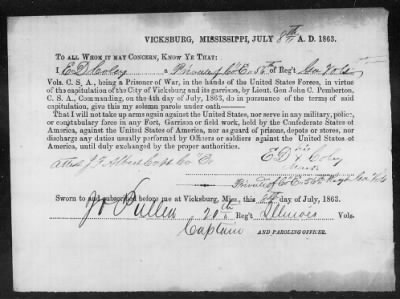 VICKSBURG, MISSISSIPPI, JULY 8th A. D. 1863.
TO ALL WHOM IT MAY CONCERN, KNOW YE THAT:
I E. D. Coley a Private of Co E. 56th Reg't Geo. Vols
Vols. C. S. A., being a Prisoner of War, in the hands of the United States Forces, in virtue
of the capitulation of the City of Vicksburg and its garrison, by Lieut. Gen. John C. Pemberton,
C. S. A., Commanding, on the 4th day of July, 1863, do in pursuance of the terms of said
capitulation, give this my solemn parole under oath—
That I will not take up arms again against the United States, nor serve in any military, police,
or constabulary force in any Fort, Garrison or field work, held by the Confederate States of
America, against the United States of America, nor as guard of prisons, depots or stores, nor
discharge any duties usually performed by Officers or soldiers against the United States of
America, until duly exchanged by the proper authorities.
E. D. his x Coley
Attest Capt Co E
mark
Private of Co E. 56th Regt Geo. Vols
Sworn to and subscribed before me at Vicksburg, Miss., this 8th day of July, 1863.
20th Reg't Illinois Vols.
Captain AND PAROLING OFFICER.